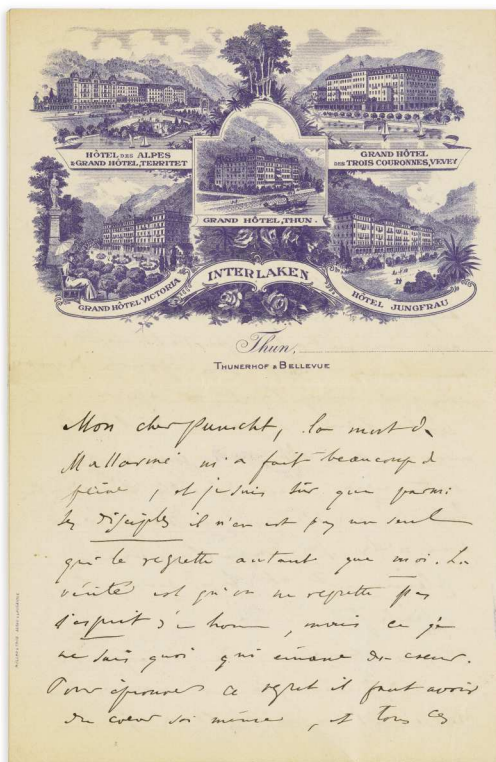 HÔTEL DES ALPES
& GRAND HÔTEL, TERRITET
GRAND HÔTEL
DES TROIS COURONNES, VEVEY
GRAND HÔTEL, THUN.
GRAND HÔTEL VICTORIA
INTERLAKEN
HÔTEL JUNGFRAU
Thun,
THUNERHOF & BELLEVUE
Mon cher , la mort de
Mallarmé m'a fait beaucoup de
peine, et je suis sûr que parmi
les disciples il n'en est pas un seul
qui le regrette autant que moi. La
vérité est qu'on ne regrette pas
l'esprit d'un homme, mais ce je
ne sais quoi qui émane du cœur.
Pour éprouver ce regret il faut avoir
du cœur soi même, et tous ces